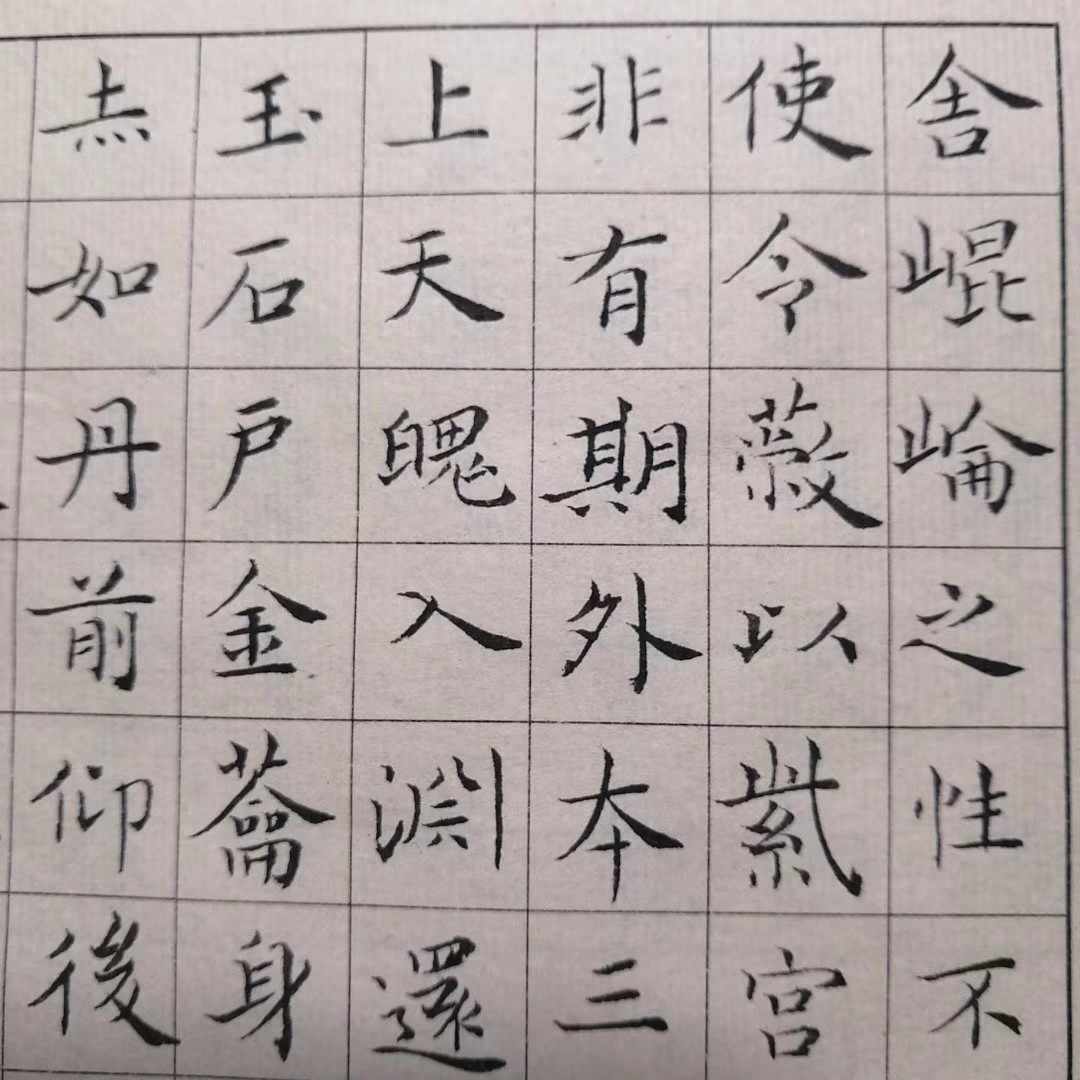 舍崐崘之性不
使令蔽以紫宫
非有期外本三
上天魄入淵還
玉石戸金籥身
赤如丹前仰後